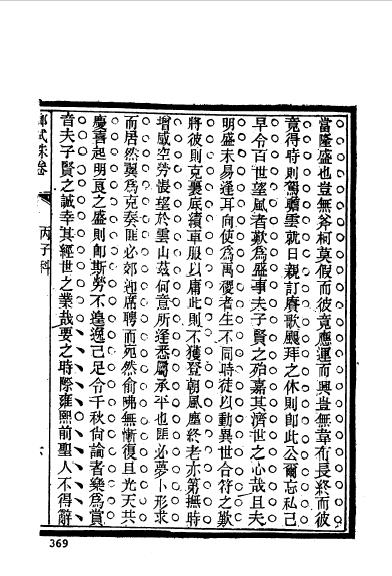 當隆盛也豈無斧柯莫假而彼竟應運而興豈無韋布長終而彼
竟得時則駕瞻雲就日親訂賡歌颺拜之休則卽此公爾忘私己
早令百世望風者歎為盛事夫子賢之殆嘉其濟世之心哉且夫
明盛未易逢耳向使為禹稷者生不同時徒以動異世合符之歎
將彼則克襄底績車服以庸此則不獲登朝風塵終老亦第撫時
增感空勞悵望於雲山茲何意所逢悉屬承平也匪必夢卜形求
而居然翼為克奏匪必郊迎席聘而宛然俞咈無慚復且光天共
慶喜起明良之盛則卽斯勞不遑逸己足令千秋尙論者樂為賞
音夫子賢之誠幸其經世之業哉要之時際雍熙前聖人不得辭
鄉試硃卷
丙子科
369